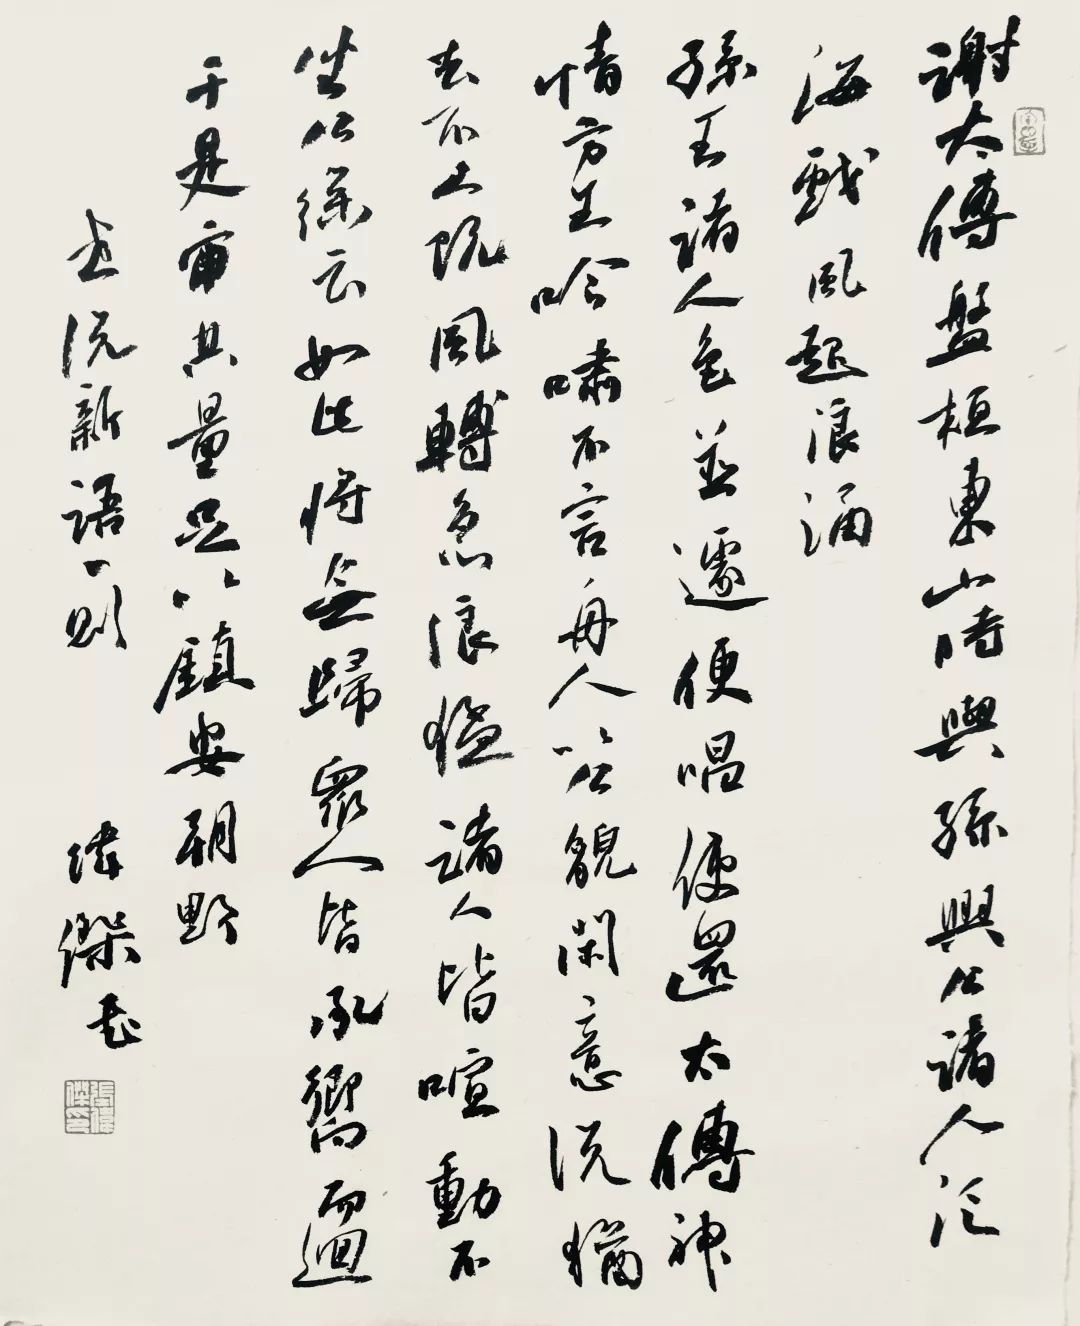 謝太傅盤桓東山時與孫興公諸人泛
海戲風起浪涌
孫王諸人色並遽便唱使還太傅神
情方王吟嘯不言舟人以公貌閑意說猶
去不止既風轉急浪猛諸人皆喧動不
坐公徐云如此將無歸眾人皆承響而迴
于是審其量足以鎮安朝野
世說新語一則 偉傑書
張偉傑印